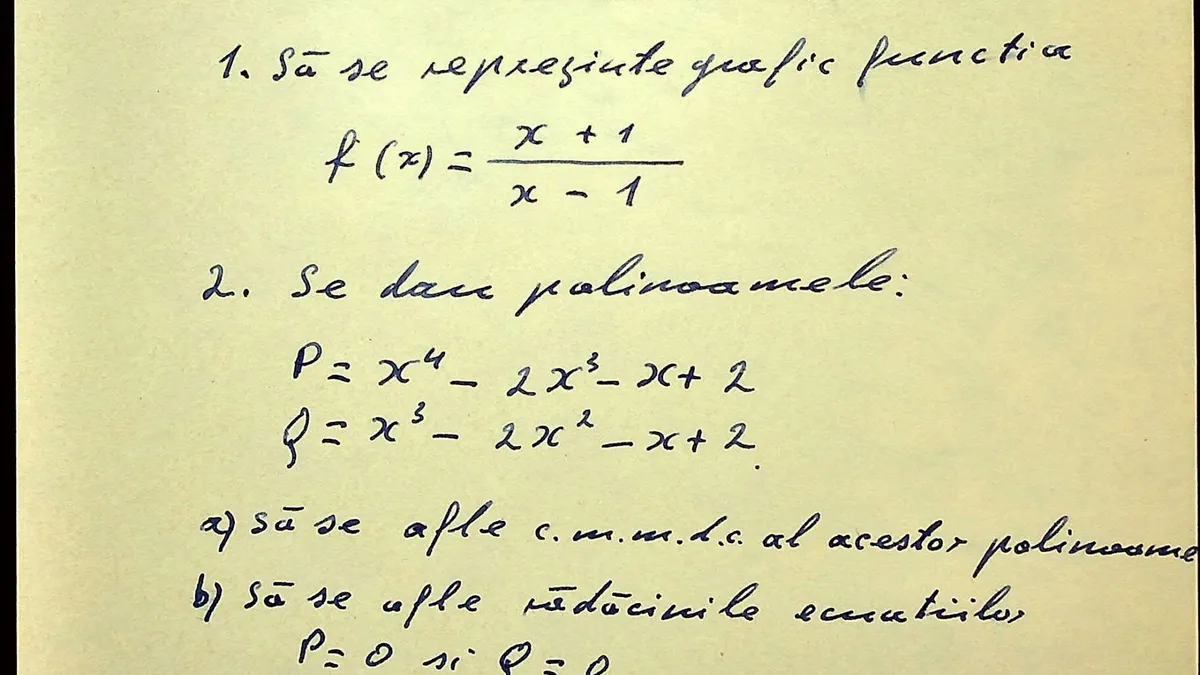 1. Să se reprezinte grafic functia
f(x) = x + 1
x - 1
2. Se dau polinoamele:
P = x⁴ - 2x³ - x + 2
Q = x³ - 2x² - x + 2.
a) Să se afle c.m.m.d.c. al acestor polinoame
b) Să se afle rădăcinile ecuatiilor
P = 0 si Q = 0